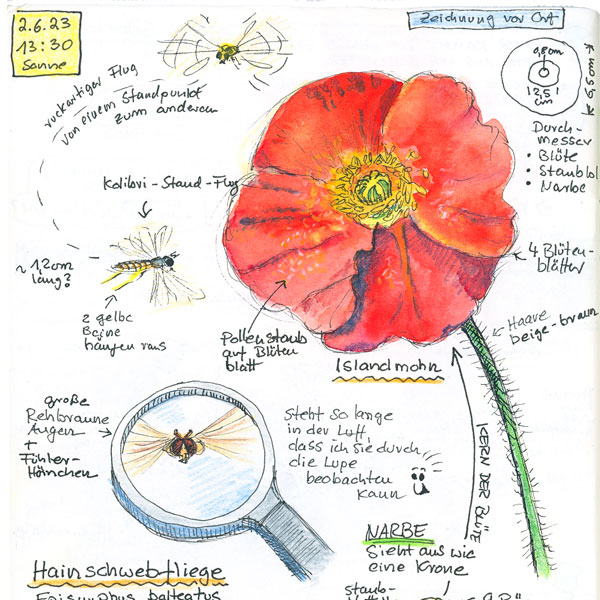 2.6.23
13:30
Sonne
Zeichnung vor Ort
ruckartiger Flug
von einem Standpunkt
zum anderen
Kolibri-Stand-Flug
~ 1,2 cm
lang?
2 gelbe
Beine
hängen raus
0,8 cm
2,5
cm
9,5 cm
Durch-
messer
• Blüte
• Staubbl
• Narbe
4 Blüten-
blätter
Haare
beige-braun
Pollenstaub
auf Blüten
blatt
Islandmohn
große
Rehbraune
Augen
+
Fühler-
Hörnchen
steht so lange
in der Luft,
dass ich sie durch
die Lupe
beobachten
kann
KERN DER BLÜTE
NARBE
Sieht aus wie
eine Krone
Hainschwebfliege
Episyrphus balteatus
staub-